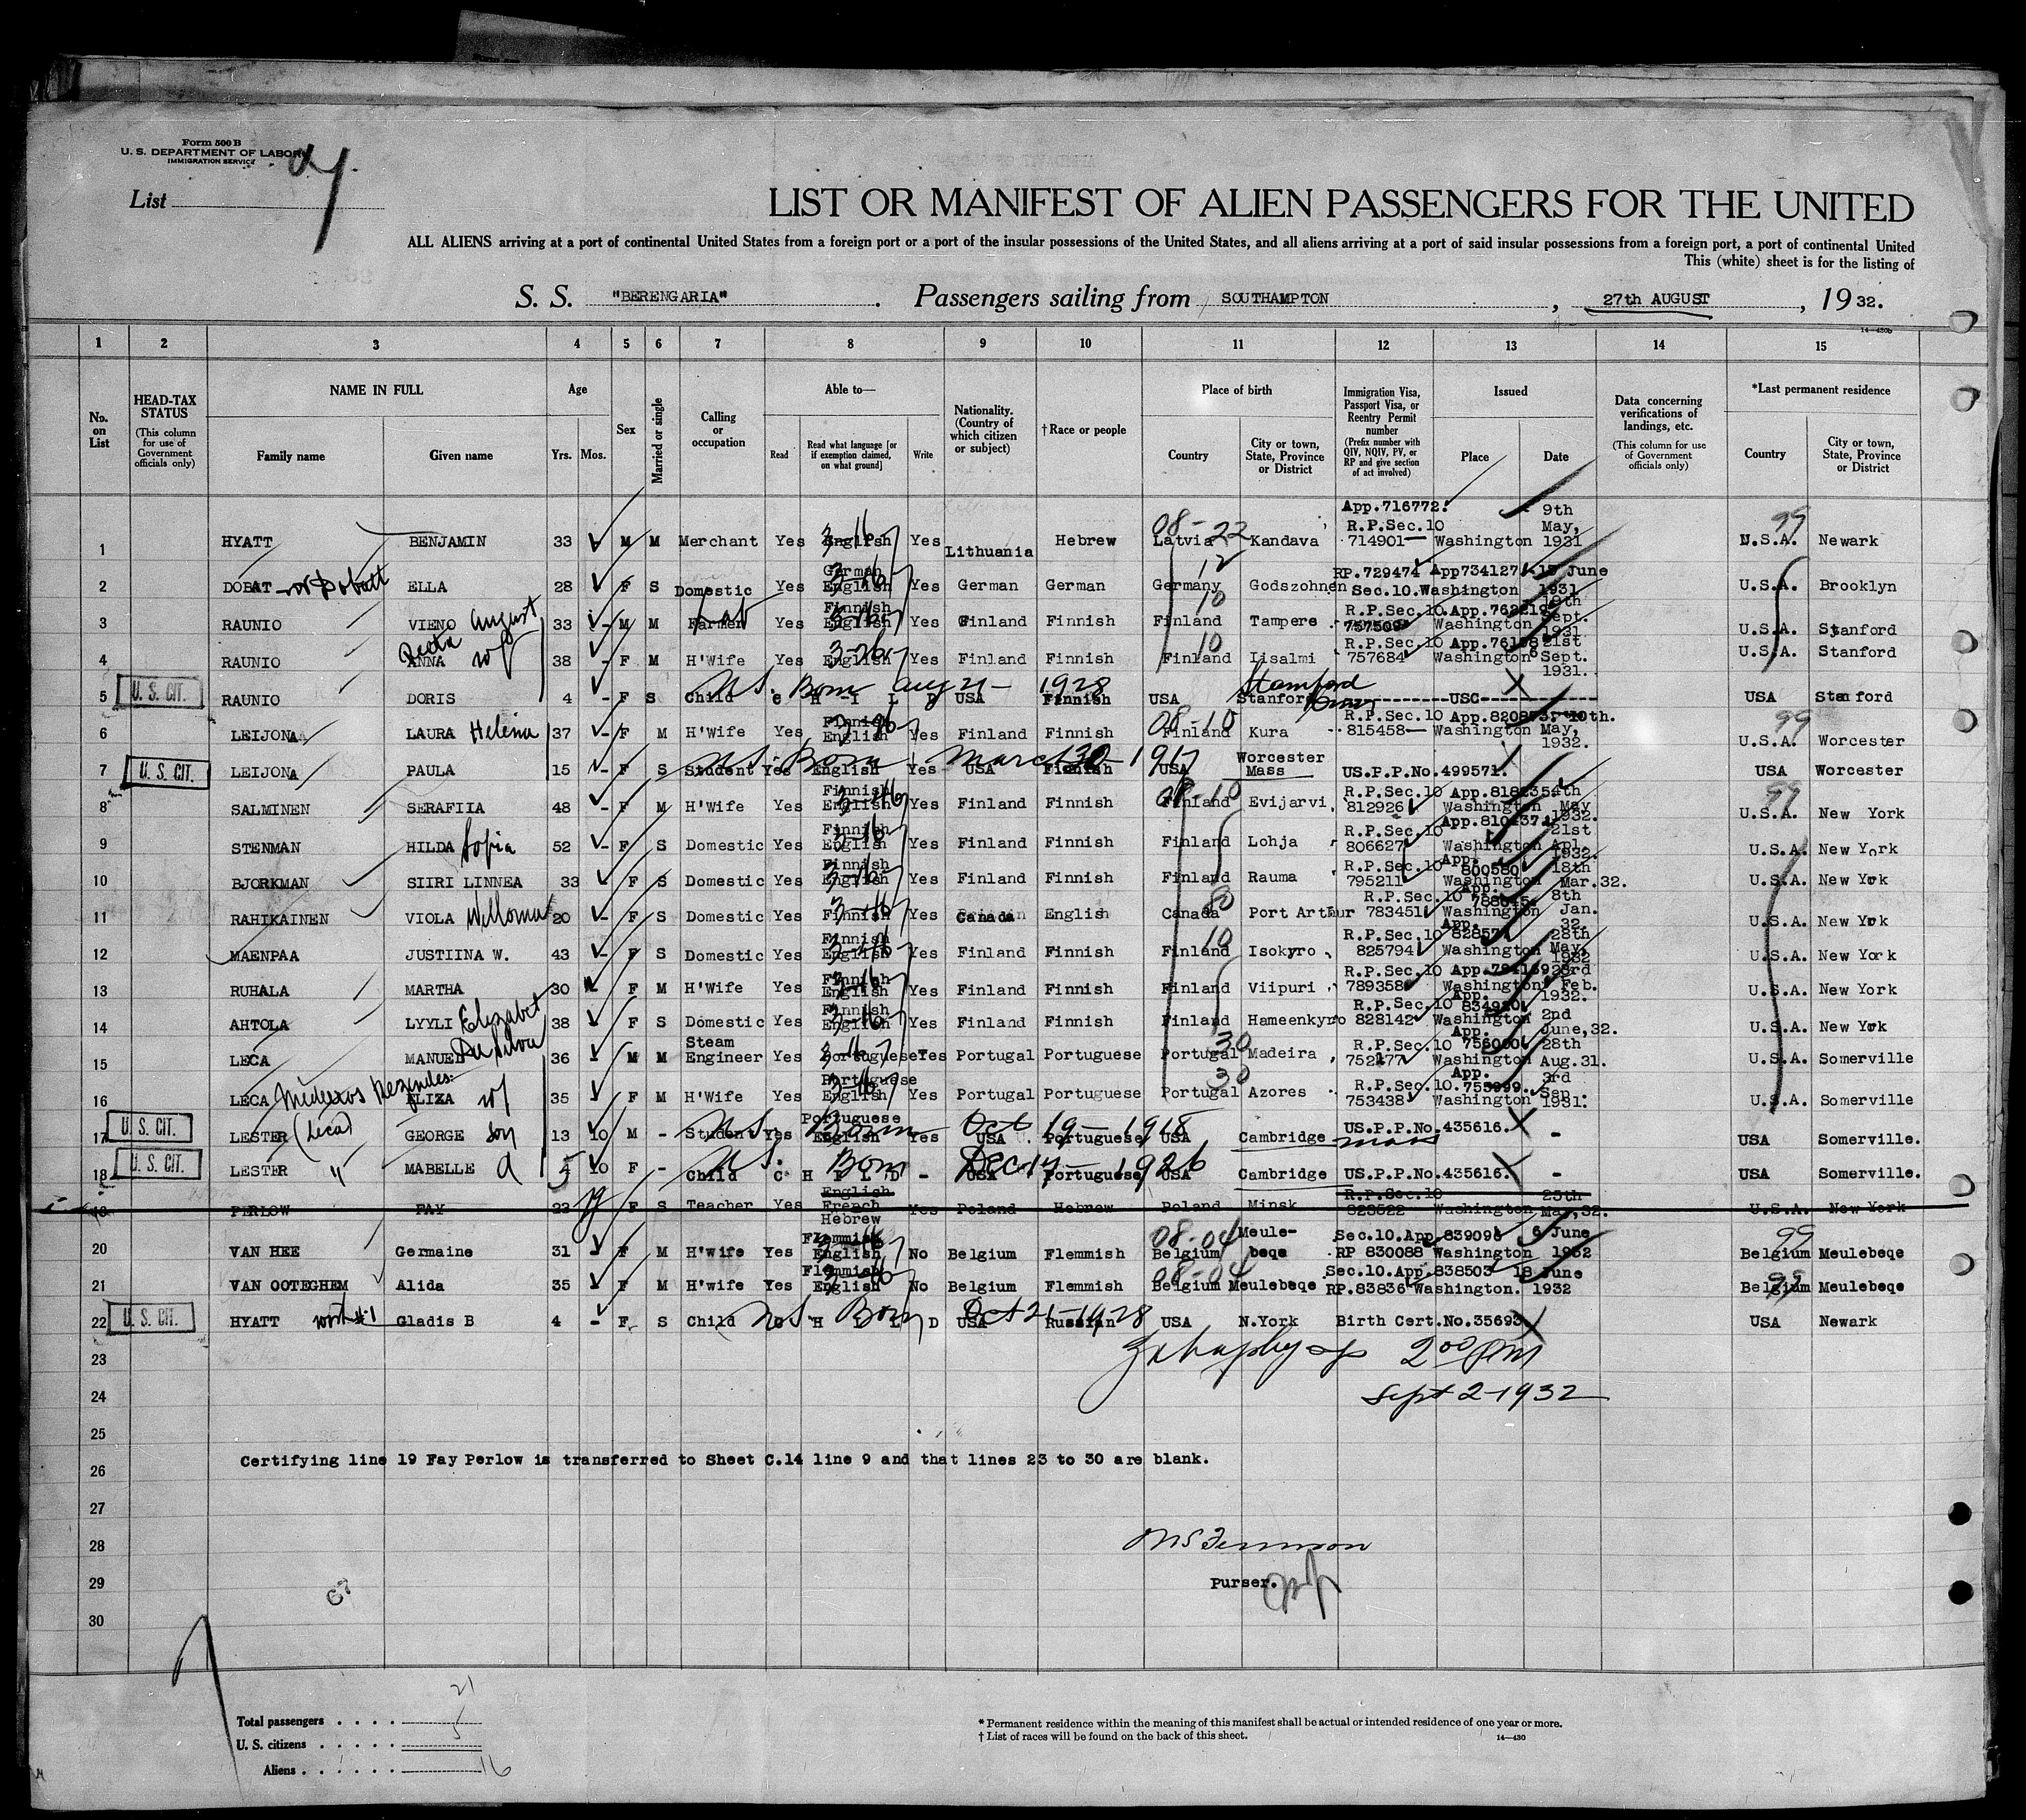 Form 500 B
U. S. DEPARTMENT OF LABOR
IMMIGRATION SERVICE
List
LIST OR MANIFEST OF ALIEN PASSENGERS FOR THE UNITED
ALL ALIENS arriving at a port of continental United States from a foreign port or a port of the insular possessions of the United States, and all aliens arriving at a port of said insular possessions from a foreign port, a port of continental United
This (white) sheet is for the listing of
S. S. "BERENGARIA". Passengers sailing from SOUTHAMPTON, 27th AUGUST, 1932.
14—430b
1 2 3 4 5 6 7 8 9 10 11 12 13 14 15
No. on List
HEAD-TAX STATUS (This column for use of Government officials only)
NAME IN FULL
Family name Given name
Age Yrs. Mos.
Sex
Married or single
Calling or occupation
Able to—
Read Read what language [or if exemption claimed, on what ground] Write
Nationality. (Country of which citizen or subject)
† Race or people
Place of birth
Country City or town, State, Province or District
Immigration Visa, Passport Visa, or Reentry Permit number (Prefix number with QIV, NQIV, PV, or RP and give section of act involved)
Issued
Place Date
Data concerning verifications of landings, etc. (This column for use of Government officials only)
*Last permanent residence
Country City or town, State, Province or District
1 HYATT BENJAMIN 33 M M Merchant Yes English 3-16 Yes Lithuania Hebrew 08-22 Latvia Kandava App.716772. R.P.Sec.10 714901 Washington 9th May, 1931 99 U.S.A. Newark
2 DOBAT or Dobatt ELLA 28 F S Domestic Yes German English 3-16 Yes German German 12 Germany Godszohnen RP.729474 App734127 Sec.10.Washington June 1931 U.S.A. Brooklyn
3 RAUNIO VIENO August 33 - M M Farmer Lab Yes Finnish English 3-16 Yes Finland Finnish 10 Finland Tampere R.P.Sec.10.App. 757509 Washington 19th Sept. 1931 U.S.A. Stanford
4 RAUNIO ANNA wf 38 - F M H'Wife Yes English 3-16 Yes Finland Finnish 10 Finland Iisalmi R.P.Sec.10 App. 757684 Washington 21st Sept. 1931. U.S.A. Stanford
5 U. S. CIT. RAUNIO DORIS 4 - F S Child C H I L D US. Born Aug 21- 1928 USA Finnish USA Stanford Stamford Conn USC USA Stanford
6 LEIJONA LAURA Helena 37 - F M H'Wife Yes Finnish English Yes Finland Finnish 08-10 Finland Kura R.P.Sec.10 App. 815458 Washington 10th. May, 1932. 99 U.S.A. Worcester
7 U. S. CIT. LEIJONA PAULA 15 F S Student Yes English Yes US. Born March 30-1917 USA Finnish USA Worcester Mass US.P.P.No.499571. USA Worcester
8 SALMINEN SERAFIIA 48 - F M H'Wife Yes Finnish English 3-16 Yes Finland Finnish 08-10 Finland Evijarvi R.P.Sec.10 App.818235 812926 Washington 4th May 1932. 99 U.S.A. New York
9 STENMAN HILDA Sofia 52 - F S Domestic Yes Finnish English 3-16 Yes Finland Finnish Finland Lohja R.P.Sec.10 App.810437 806627 Washington 21st Apl. 1932. U.S.A. New York
10 BJORKMAN SIIRI LINNEA 33 F S Domestic Yes Finnish English 3-16 Yes Finland Finnish Finland Rauma R.P.Sec.10 App. 800580 795211 Washington 18th Mar.32. U.S.A. New York
11 RAHIKAINEN VIOLA 20 - F S Domestic Yes Finnish 3-16 Yes Canada English 80 Canada Port Arthur R.P.Sec.10 App. 783451 Washington 8th Jan. 32. U.S.A. New York
12 MAENPAA JUSTIINA W. 43 - F S Domestic Yes Finnish English 3-16 Yes Finland Finnish 10 Finland Isokyro R.P.Sec.10 App. 825794 Washington 28th May, 1932 U.S.A. New York
13 RUHALA MARTHA 30 F M H'Wife Yes Finnish English 3-16 Yes Finland Finnish Finland Viipuri R.P.Sec.10 App. 789358 Washington 23rd Feb. 1932. U.S.A. New York
14 AHTOLA LYYLI Elizabet 38 F S Domestic Yes Finnish English 3-16 Yes Finland Finnish Finland Hameenkyro R.P.Sec.10 App. 828142 Washington 2nd June,32. U.S.A. New York
15 LECA MANUEL Da Silva 36 M M Steam Engineer Yes Portuguese 3-16 Yes Portugal Portuguese 30 Portugal Madeira R.P.Sec.10 App. 752177 Washington 28th Aug.31. U.S.A. Somerville
16 LECA ELIZA wf 35 F M H'Wife Yes Portuguese English 3-16 Yes Portugal Portuguese 30 Portugal Azores R.P.Sec.10. App. 753438 Washington 3rd Sep. 1931. U.S.A. Somerville
17 U. S. CIT. LESTER (Leca) GEORGE son 13 10 M - Student Yes Portuguese English Yes US. Born Oct 19-1918 USA Portuguese USA Cambridge Mass US.P.P.No.435616. - USA Somerville.
18 U. S. CIT. LESTER " MABELLE d 5 10 F - Child C H I L D - US. Born Dec 14-1926 USA Portuguese USA Cambridge US.P.P.No.435616. - USA Somerville.
19 PERLOW FAY F S Teacher Yes English French Hebrew Yes Poland Hebrew Poland Minsk R.P.Sec.10 823522 Washington 25th May,32. U.S.A. New York
20 VAN HEE Germaine 31 F M H'wife Yes Flemmish English 3-16 No Belgium Flemmish 08-04 Belgium Meulebeqe Sec.10.App. RP 830088 Washington 6 June 1932 99 Belgium Meulebeqe
21 VAN OOTEGHEM Alida 35 F M H'wife Yes Flemmish English 3-16 No Belgium Flemmish 08-04 Belgium Meulebeqe Sec.10.App.838503 RP.83836 Washington. 18 June 1932 99 Belgium Meulebeqe
22 U. S. CIT. HYATT #1 Gladis B 4 - F S Child C H I L D US. Born Oct 21-1928 USA Russian USA N.York Birth Cert.No.35693 USA Newark
23
2 00 PM
24
Sept 2-1932
25
Certifying line 19 Fay Perlow is transferred to Sheet C.14 line 9 and that lines 23 to 30 are blank.
26
27
28
29
Purser.
30
Total passengers . . . . 21
U. S. citizens . . . . . 5
Aliens . . . . . . 16
* Permanent residence within the meaning of this manifest shall be actual or intended residence of one year or more.
† List of races will be found on the back of this sheet.
14—430